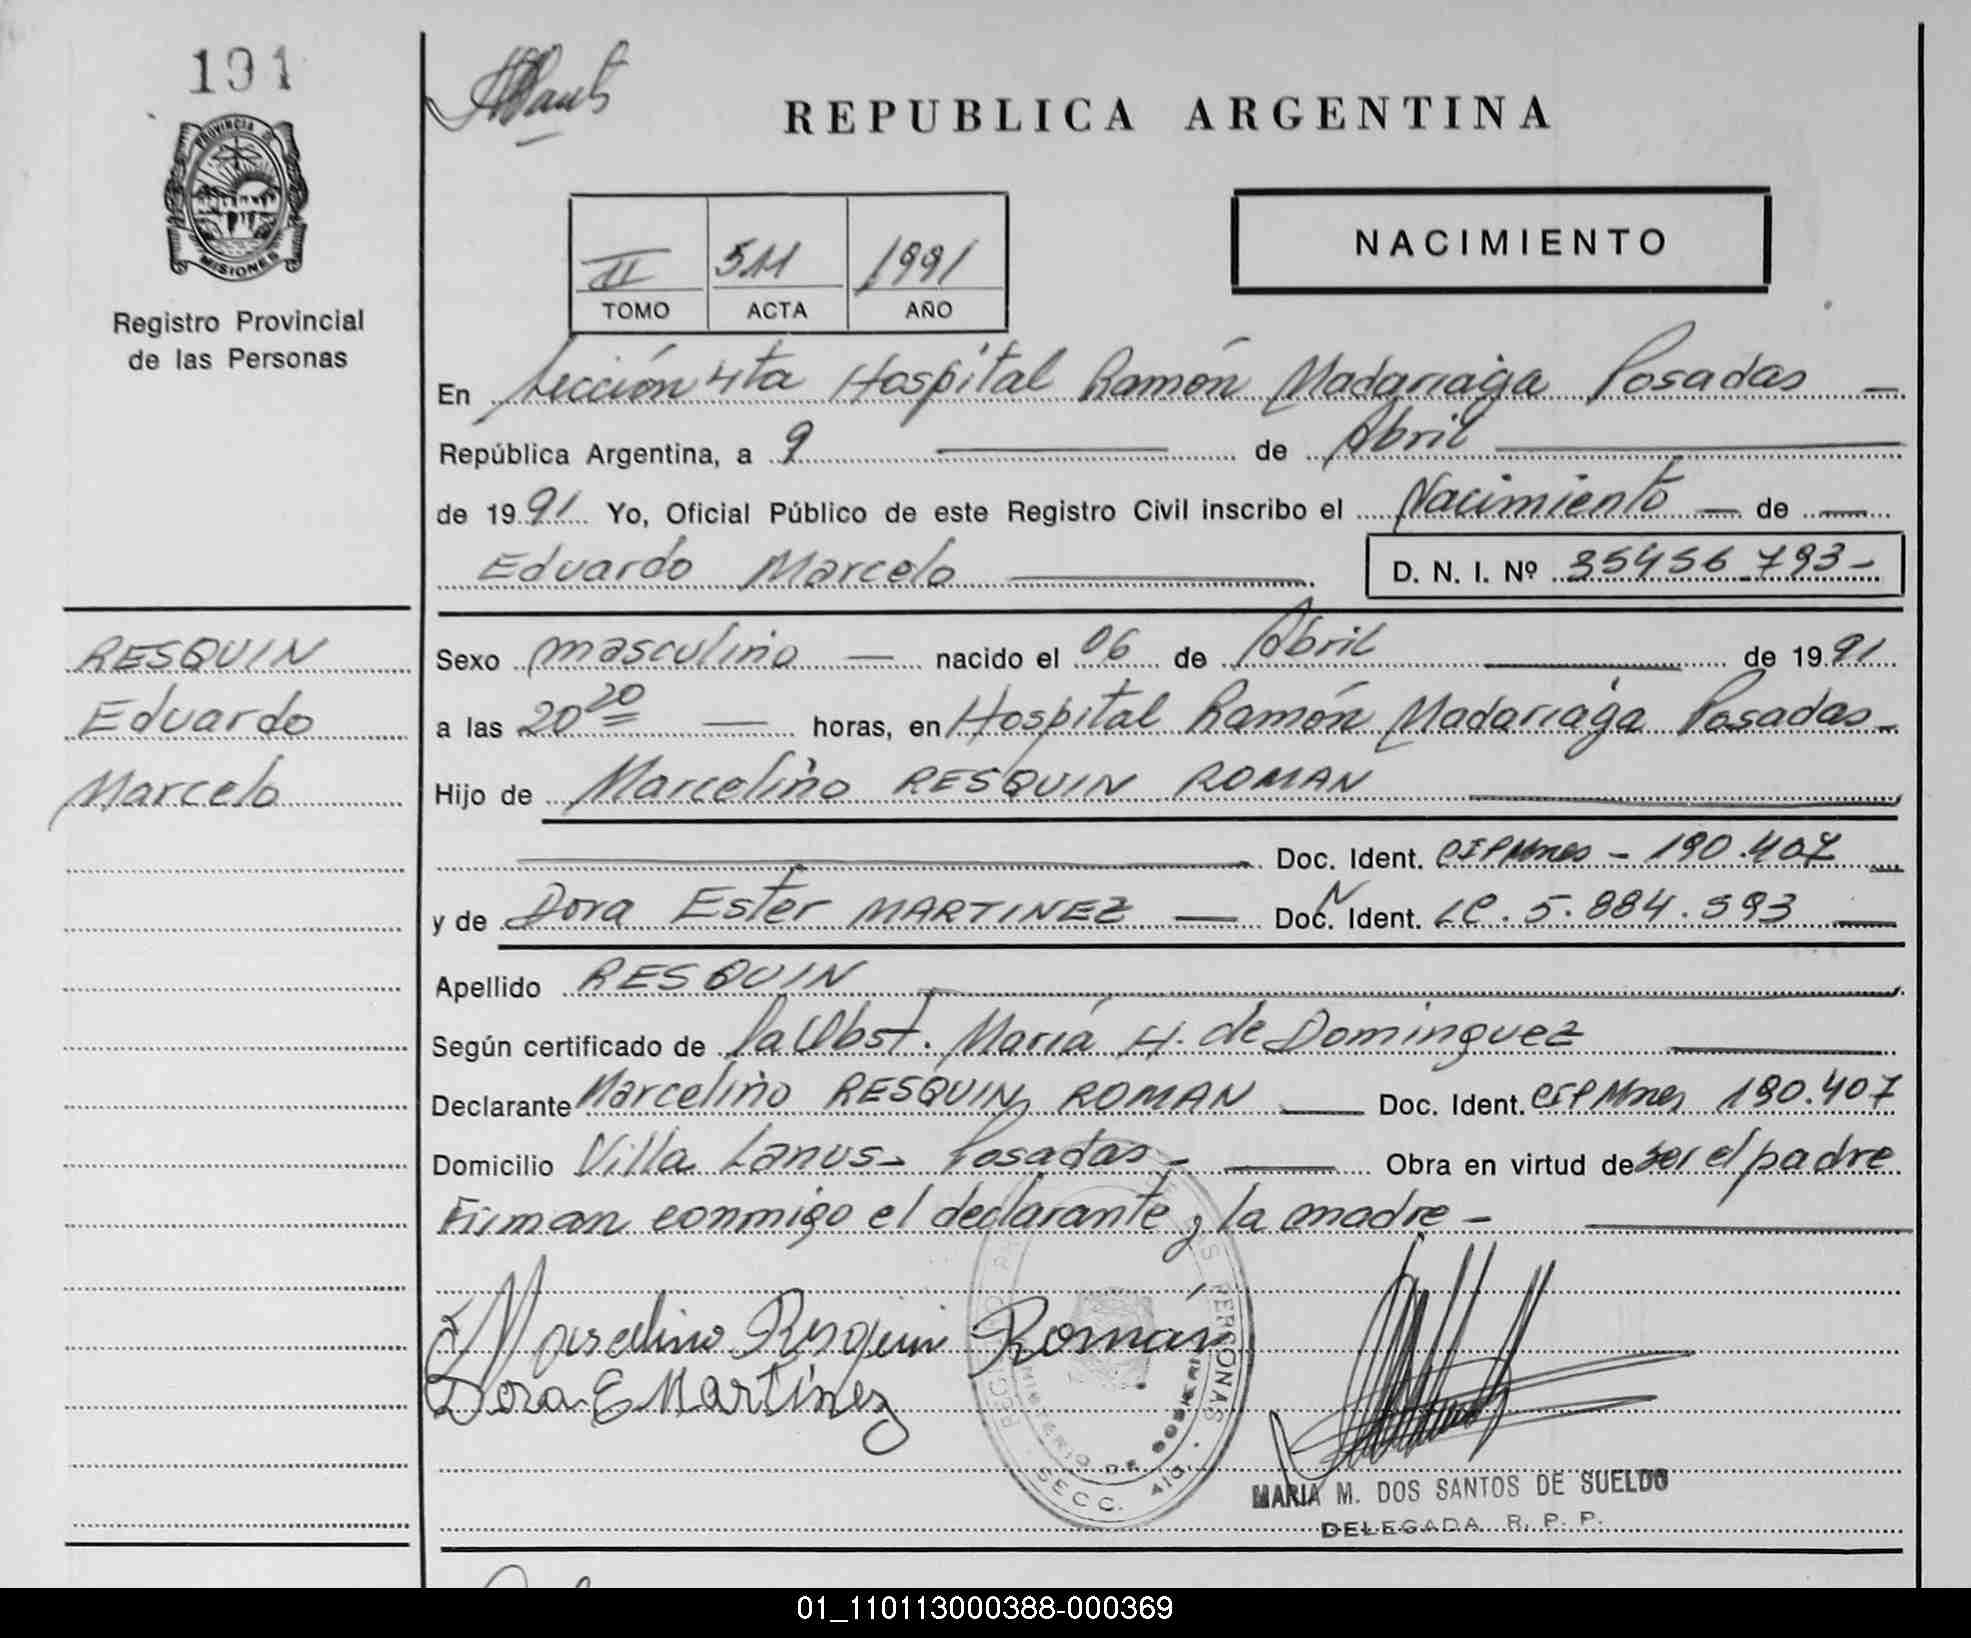 191
PROVINCIA DE
MISIONES
Registro Provincial
de las Personas
REPUBLICA ARGENTINA
II 511 1991
TOMO ACTA AÑO
NACIMIENTO
En Sección 4ta Hospital Ramón Madariaga Posadas —
República Argentina, a 9 — de Abril —
de 1991 Yo, Oficial Público de este Registro Civil inscribo el Nacimiento — de —
Eduardo Marcelo — D. N. I. Nº 35456.793-
RESQUIN
Eduardo
Marcelo
Sexo masculino — nacido el 06 de Abril — de 1991
a las 20 20 — horas, en Hospital Ramón Madariaga Posadas-
Hijo de Marcelino RESQUIN ROMAN —
— Doc. Ident. CIPMnes - 190.407
y de Dora Ester MARTINEZ — Doc. N Ident. LC. 5.884.593 —
Apellido RESQUIN —
Según certificado de la Obst. María H. de Dominguez —
Declarante Marcelino RESQUIN ROMAN — Doc. Ident. CIPMnes 190.407
Domicilio Villa Lanus- Posadas- — Obra en virtud de ser el padre
Firman conmigo el declarante y la madre - —
Marcelino Resquin Román
Dora E Martínez
PERSONAS
MINISTERIO DE GOBIERNO
SECC. 4ta.
MARIA M. DOS SANTOS DE SUELDO
DELEGADA R. P. P.
01_110113000388-000369